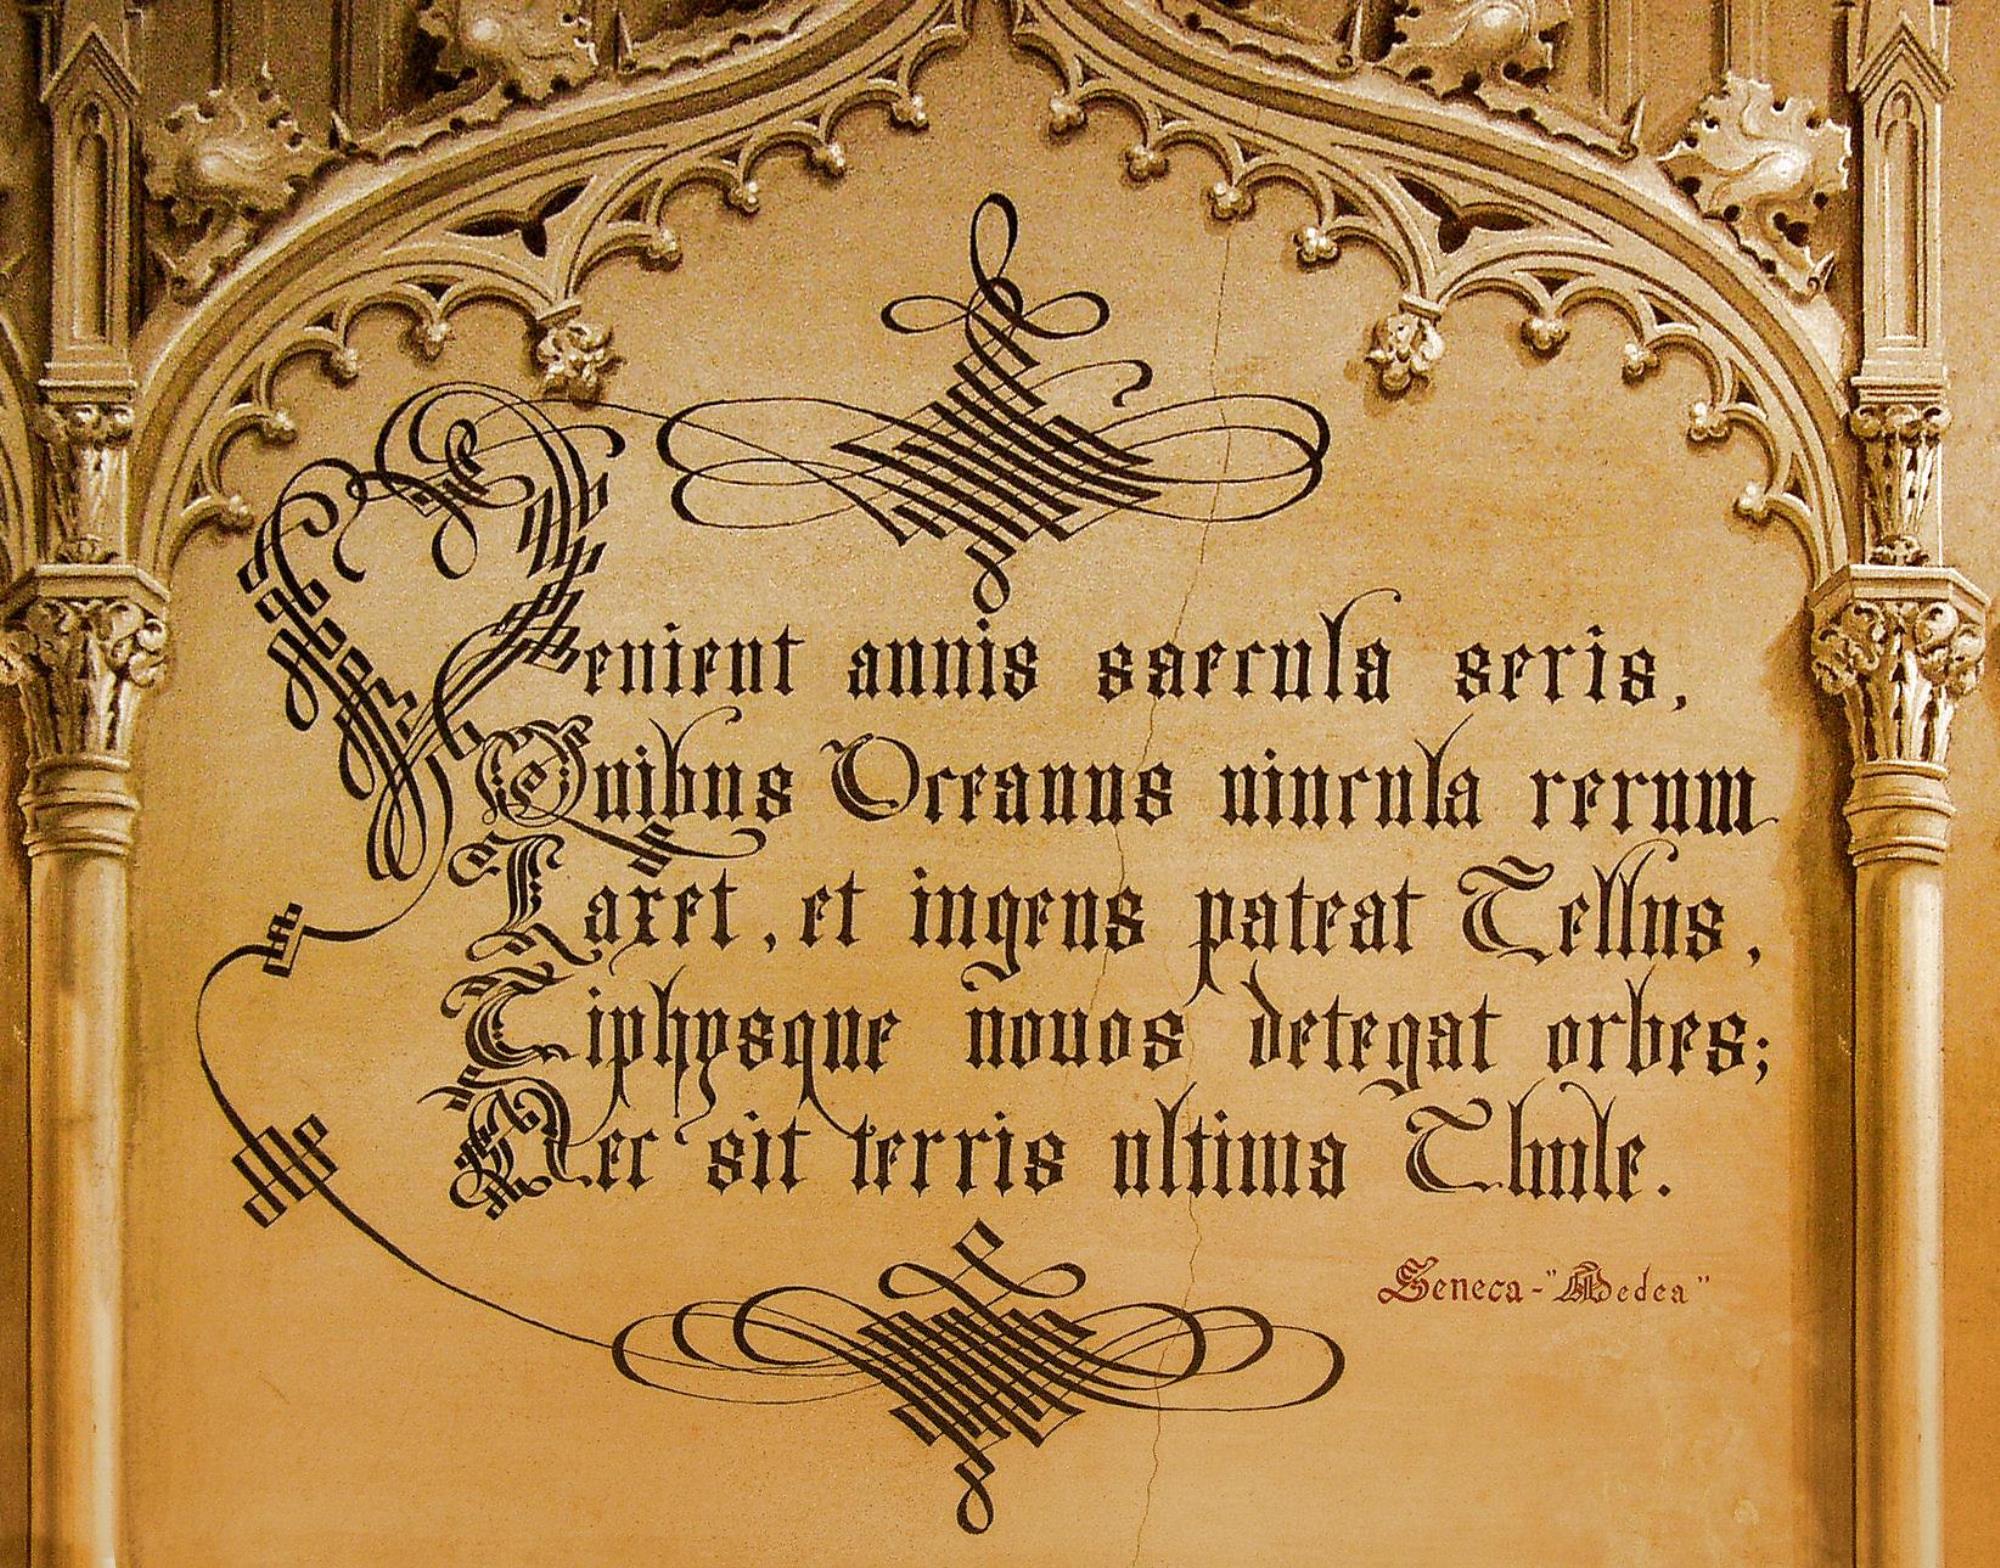 Venient annis saecula seris,
Quibus Oceanus uincula rerum
Laxet, et ingens pateat Tellus,
Tiphysque nouos detegat orbes;
Nec sit terris ultima Thule.
Seneca - "Medea"